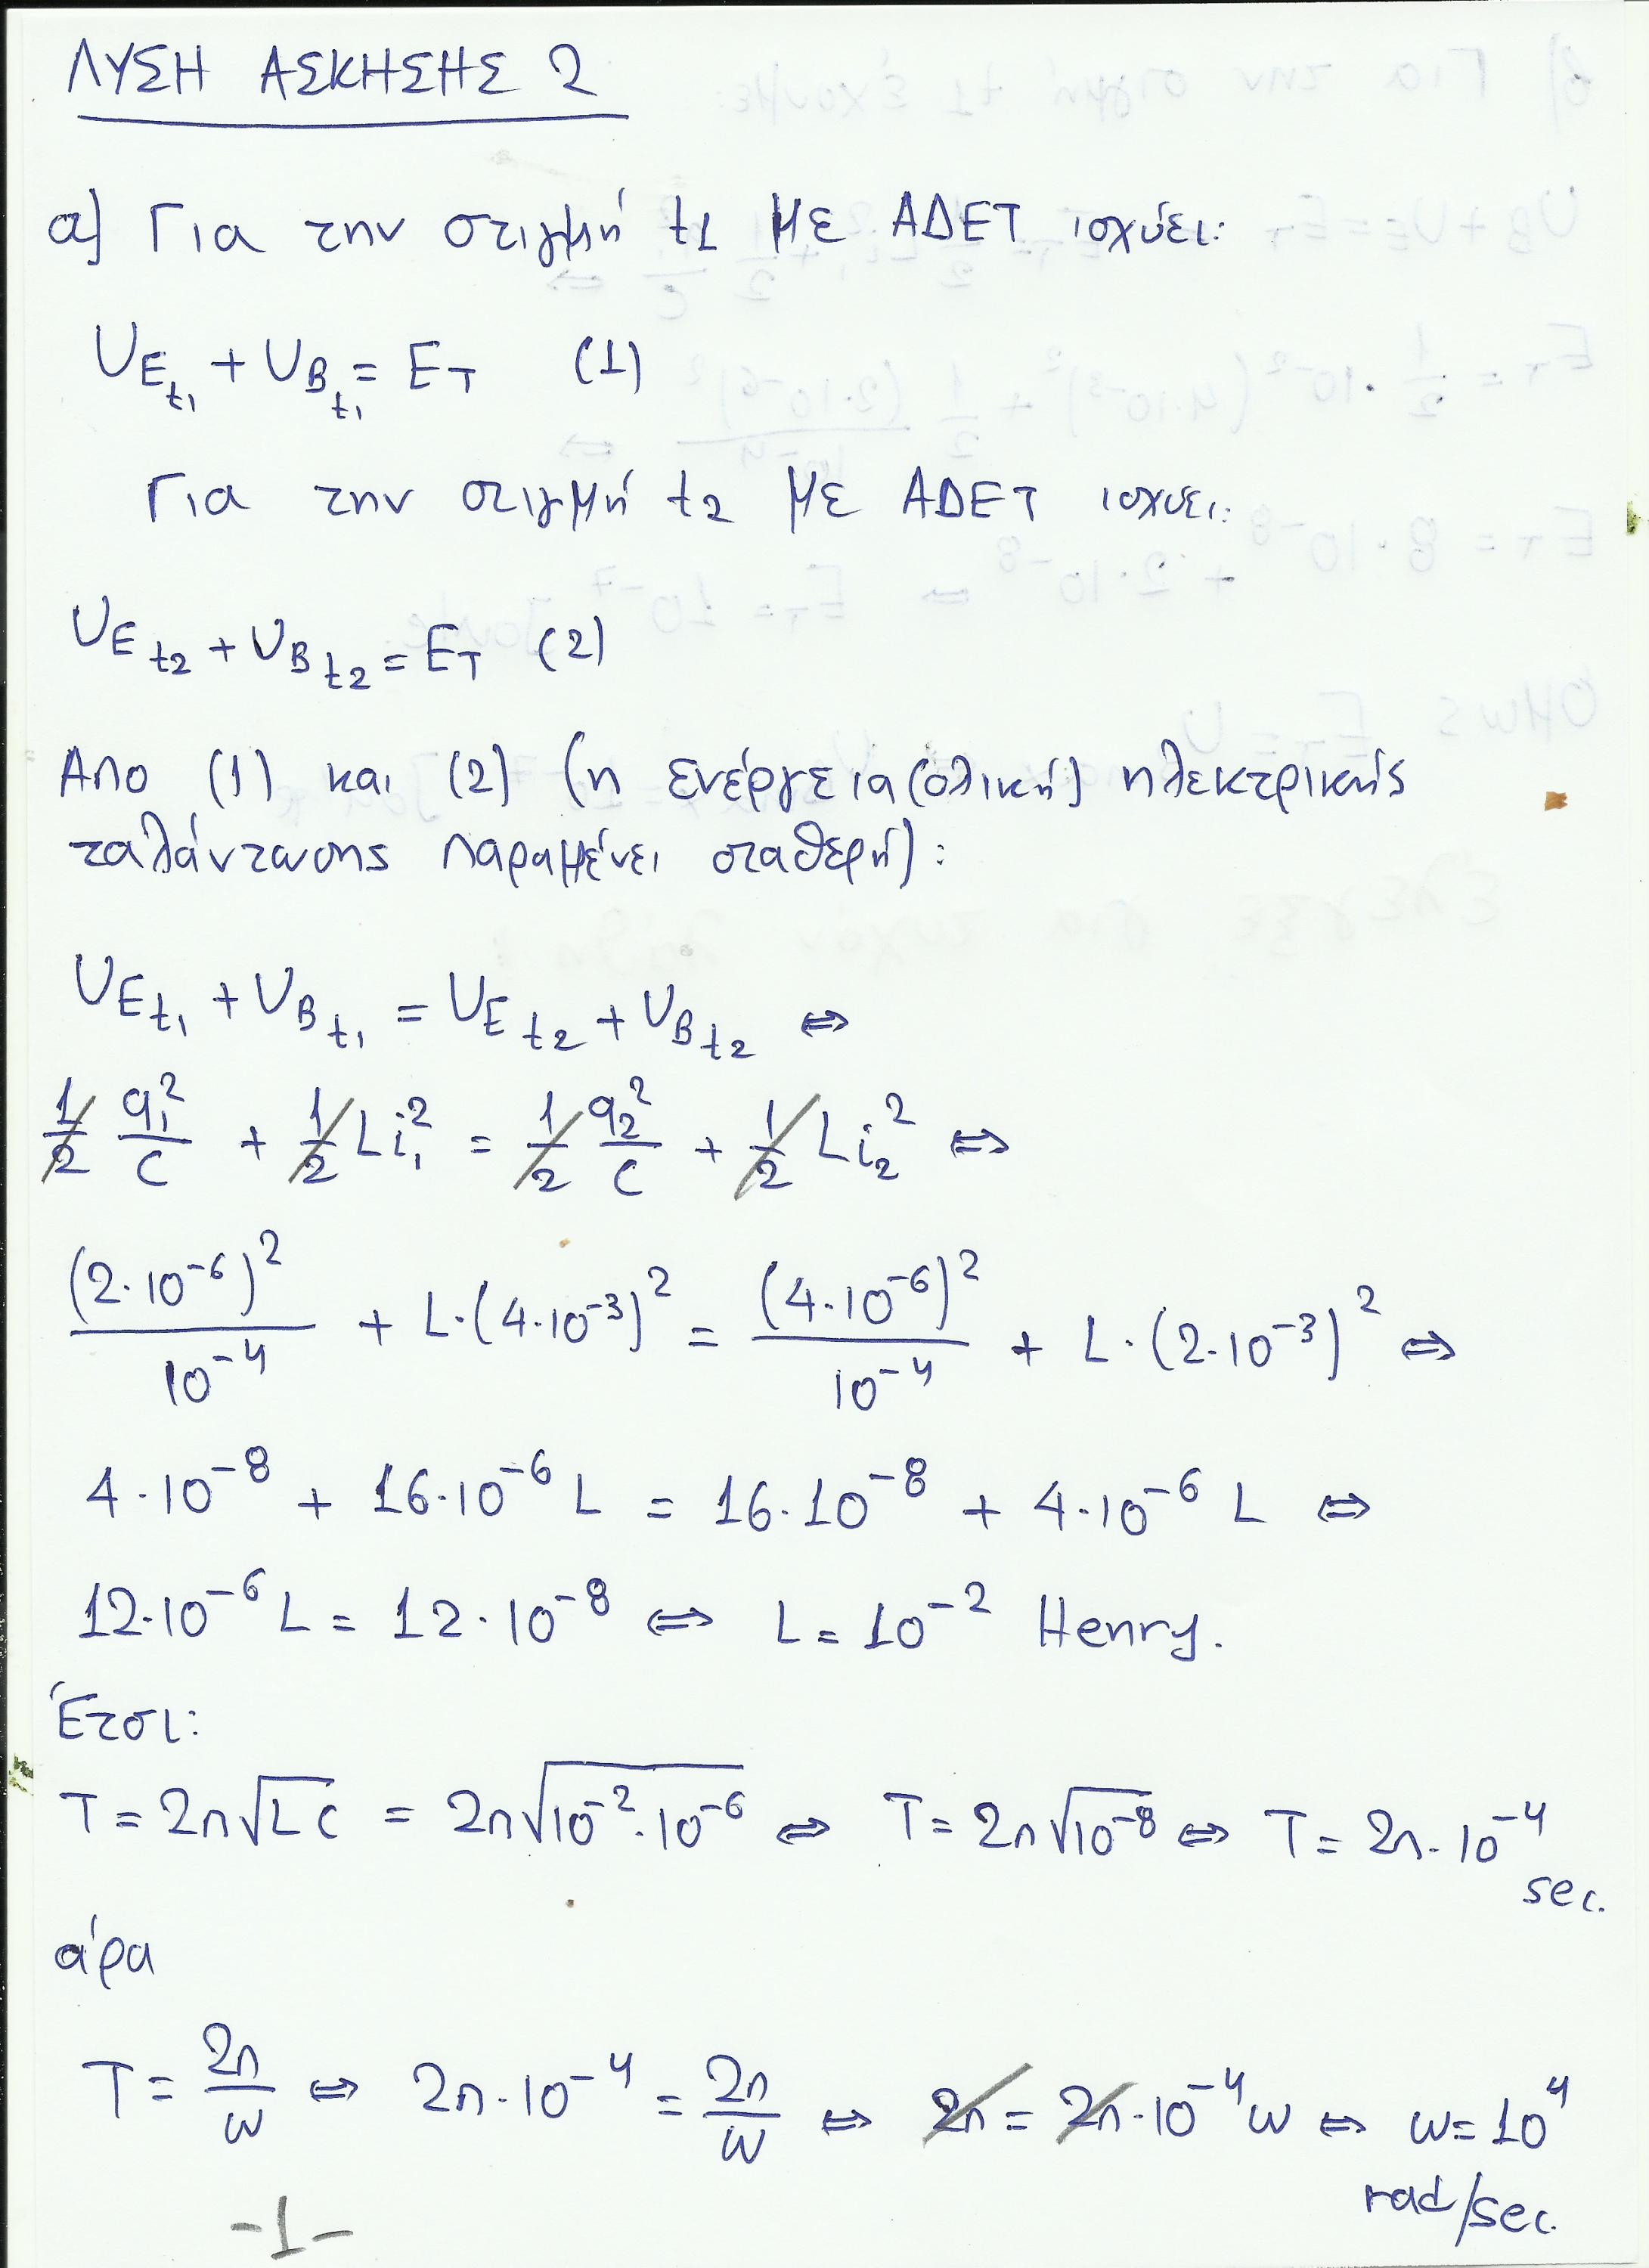 ΛΥΣΗ ΑΣΚΗΣΗΣ 2
α) Για την στιγμή t1 ΜΕ ΑΔΕΤ ισχύει:
U_{E_{t1}} + U_{B_{t1}} = E_T (1)
Για την στιγμή t2 ΜΕ ΑΔΕΤ ισχυει:
U_{E_{t2}} + U_{B_{t2}} = E_T (2)
Απο (1) και (2) (η ενέργεια (ολική) ηλεκτρικής
ταλάντωσης παραμένει σταθερή):
U_{E_{t1}} + U_{B_{t1}} = U_{E_{t2}} + U_{B_{t2}} ⇔
1/2 q₁²/C + 1/2 L i₁² = 1/2 q₂²/C + 1/2 L i₂² ⇔
(2·10⁻⁶)²/10⁻⁴ + L·(4·10⁻³)² = (4·10⁻⁶)²/10⁻⁴ + L·(2·10⁻³)² ⇔
4·10⁻⁸ + 16·10⁻⁶ L = 16·10⁻⁸ + 4·10⁻⁶ L ⇔
12·10⁻⁶ L = 12·10⁻⁸ ⇔ L = 10⁻² Henry.
Έτσι:
T = 2π√LC = 2π√10⁻²·10⁻⁶ ⇔ T = 2π√10⁻⁸ ⇔ T = 2π·10⁻⁴
sec.
άρα
T = 2π/ω ⇔ 2π·10⁻⁴ = 2π/ω ⇔ 2π = 2π·10⁻⁴ω ⇔ ω = 10⁴
rad/sec.
-1-